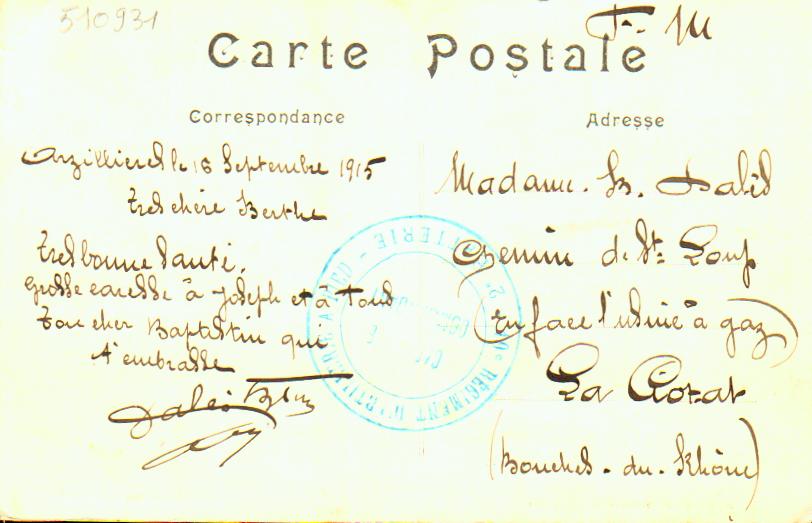 510931
F. M
Carte Postale
Correspondance
Arzillieres le 16 Septembre 1915
Tres chère Berthe
Tres bonne santé.
Grosse caresse à Joseph et à tous
Ton cher Baptistin qui
t'embrasse
Dalès Btin
Adresse
Madame B. Dalès
Chemin de St= Loup
(En face l'usine à gaz)
La Ciotat
(Bouches-du-Rhône)
REGIMENT D'ARTILLERIE
BATTERIE